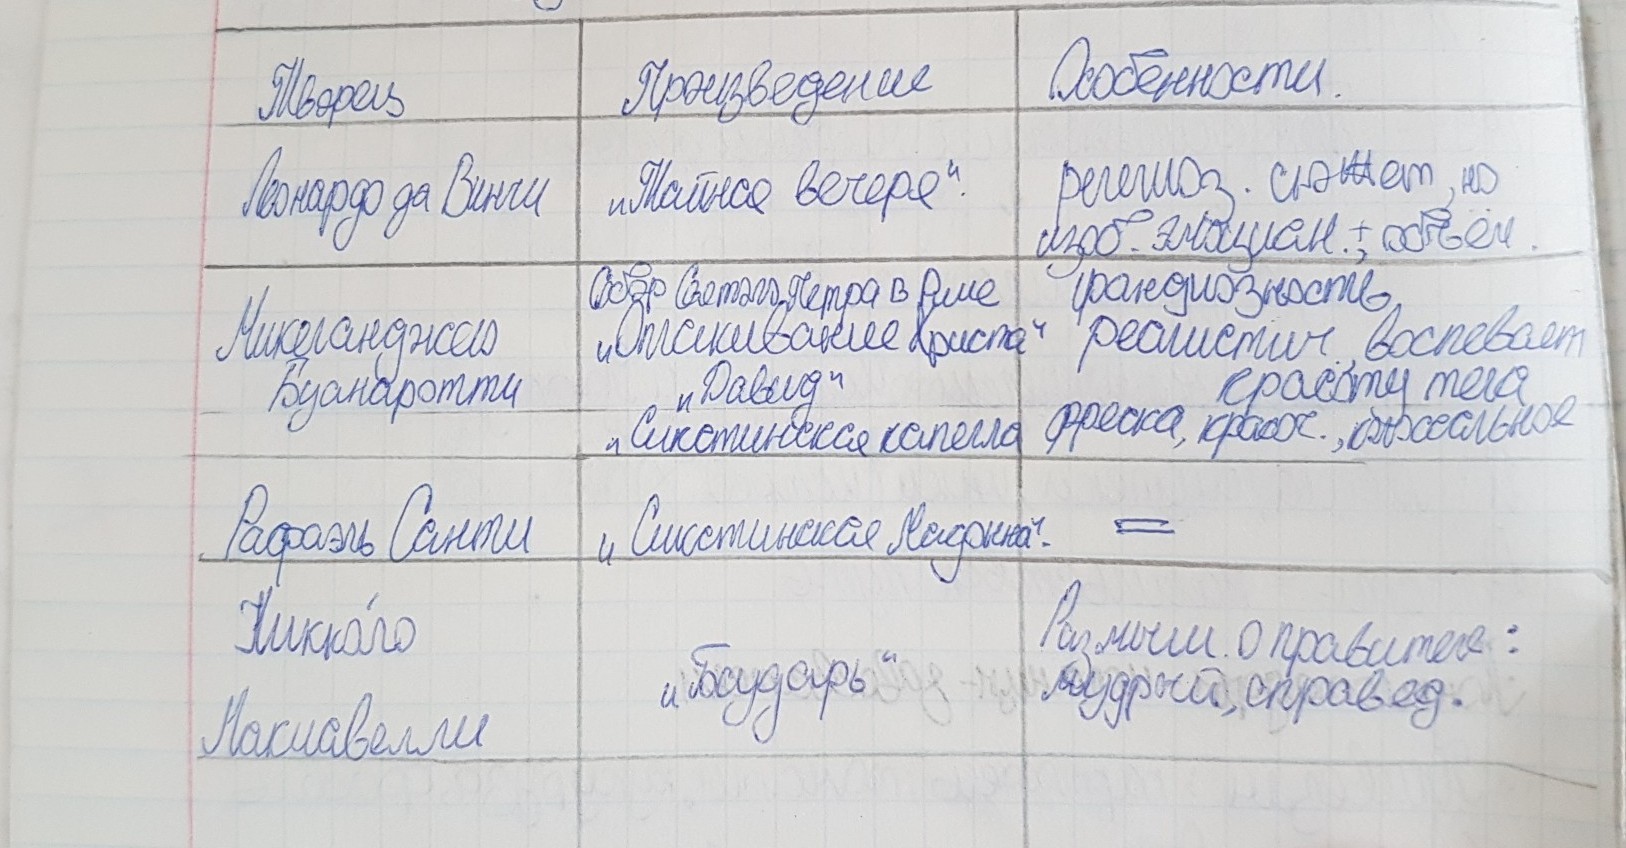 Творец Произведение Особенности.
Леонардо да Винчи „Тайная вечеря“. религиоз. сюжет, но
изоб. эмоцион. +, объём.
Микеланджело
Буанаротти
Собор Святого Петра в Риме грандиозность,
„Оплакивание Христа“ реалистич., воспевает
„Давид“ красоту тела
„Сикстинская капелла фреска, красоч.,
Рафаэль Санти „Сикстинская Мадонна“. =
Никко́ло
Макиавелли
„Государь“
Размышл. о правителе:
мудрый, справед.